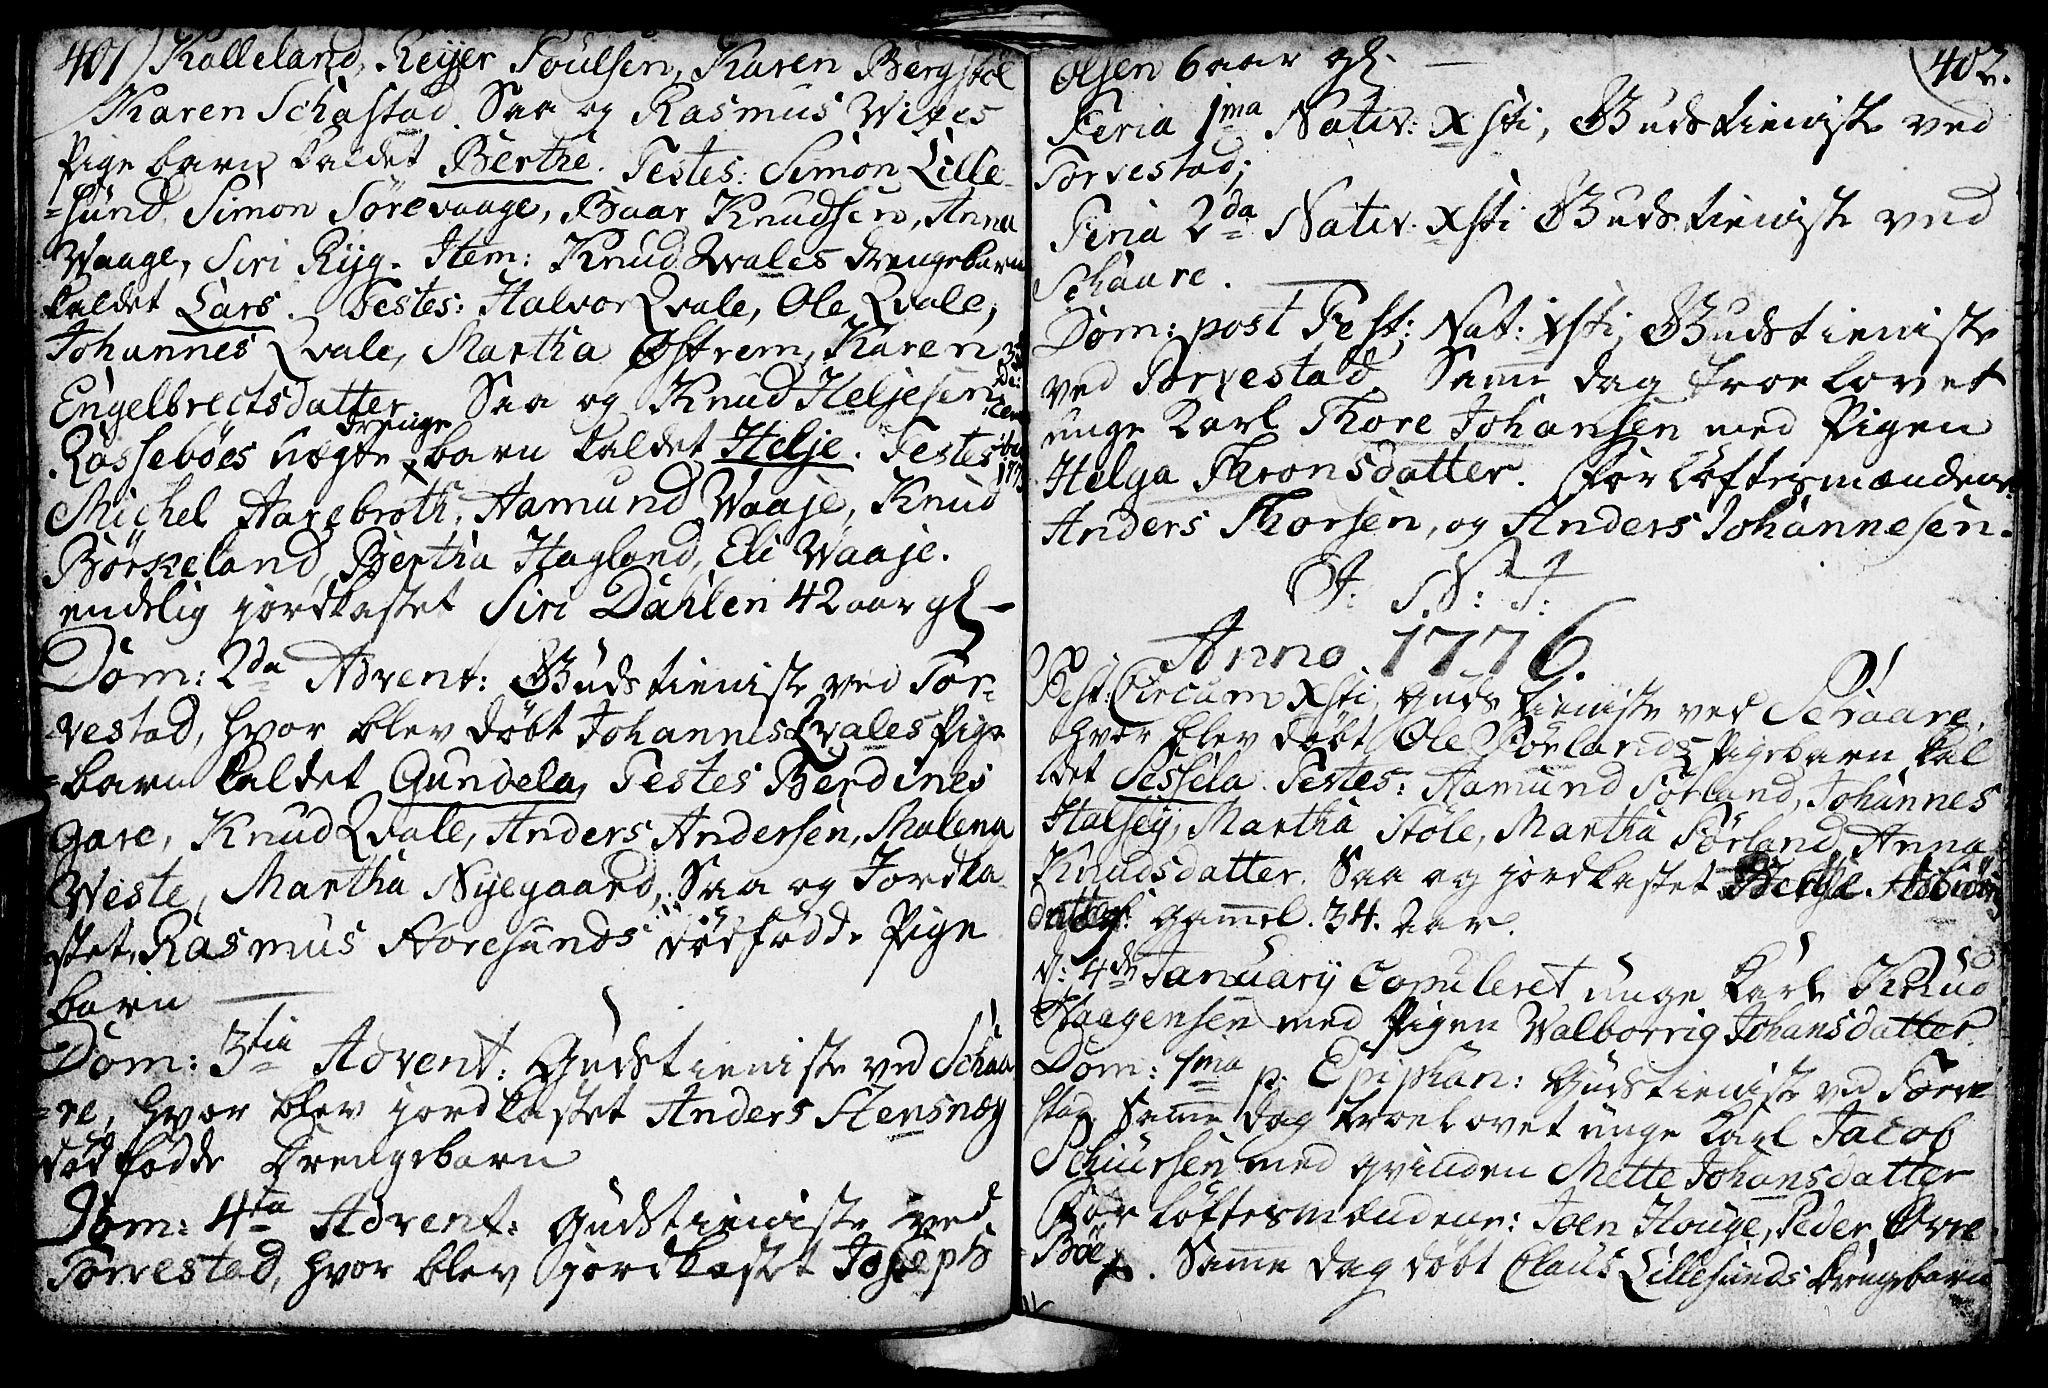 401) Kalleland, Reijer Poulsen, Karen Bergstøl
Karen Schastad. Saa og Rasmus Wikes
Pige barn kaldet Berthe. Testes: Simon Lille-
=sund, Simon Sørevaage, Baar Knudsen, Anna
Waage, Siri Ryg. Item: Knud Qvales drengebarn
kaldet Lars. Testes: Halvor Qvale, Ole Qvale,
Johannes Qvale, Martha Østrem, Karen
Engelbrectsdatter. Saa og Knud Heljesen
Røssebøes uægte drenge barn kaldet Helje. Testes
Michel Harebroth, Aamund Waaje, Knud
Børkeland, Bertha Hagland, Eli Waaje.
endelig jordkastet Siri Dahlen 42 aar gl
Dom: 2da Advent: Gudstieniste ved Tor-
=vestad, hvor blev døbt Johannes Qvales Pige
=barn kaldet Gundela, Testes Berdines
Gare, Knud Qvale, Anders Andersen, Malena
Weste, Martha Nyegaard, Saa og Jordka
stet, Rasmus Storesunds dødfødde Pige
barn
Dom: 3tia Advent: Gudstieniste ved Schaa
=re, hvor blev jordkastet Anders Stensnæs
død fødde Drengebarn
Dom: 4ta Advent: Gudstieniste ved
Torvestad, hvor blev jordkastet Joseph
402.
Olsen 6 aar gl.
Feria 1ma Nativ: Xsti, Gudstieniste ved
Torvestad;
Feria 2da Nativ: Xsti Gudstieniste ved
Schaare.
Dom: post Fest: Nat: Xsti, Gudstieniste
ved Torvestad. Samme dag troelovet
unge Karl Thore Johansen med Pigen
Helga Thronsdatter. Forløftesmændene:
Anders Thorsen, og Anders Johannesen.
J: N: J:
Anno 1776.
Fest: Circum Xsti, Gudstieniste ved Schaare.
hvor blev døbt Ole Sørlands Pigebarn kal
det Sessela. Testes: Aamund Sørland, Johannes
Halsøy, Martha Støle, Martha Sørland, Anna
Knudsdatter. Saa og jordkastet
gammel. 34. Aar.
d: 4de Januarij Copuleret unge Karl Knud
Haagensen med Pigen Walborrig Johansdatter.
Dom: 1ma p. Epiphan: Gudstieniste ved Torve
stad Samme dag troelovet unge Karl Jacob
Schiursen med qvinden Mette Johansdatter
Forløftesmændene: Joen Houge, Peder Øvre
=Bøe. Samme dag døbt Claus Lillesunds Drengebarn